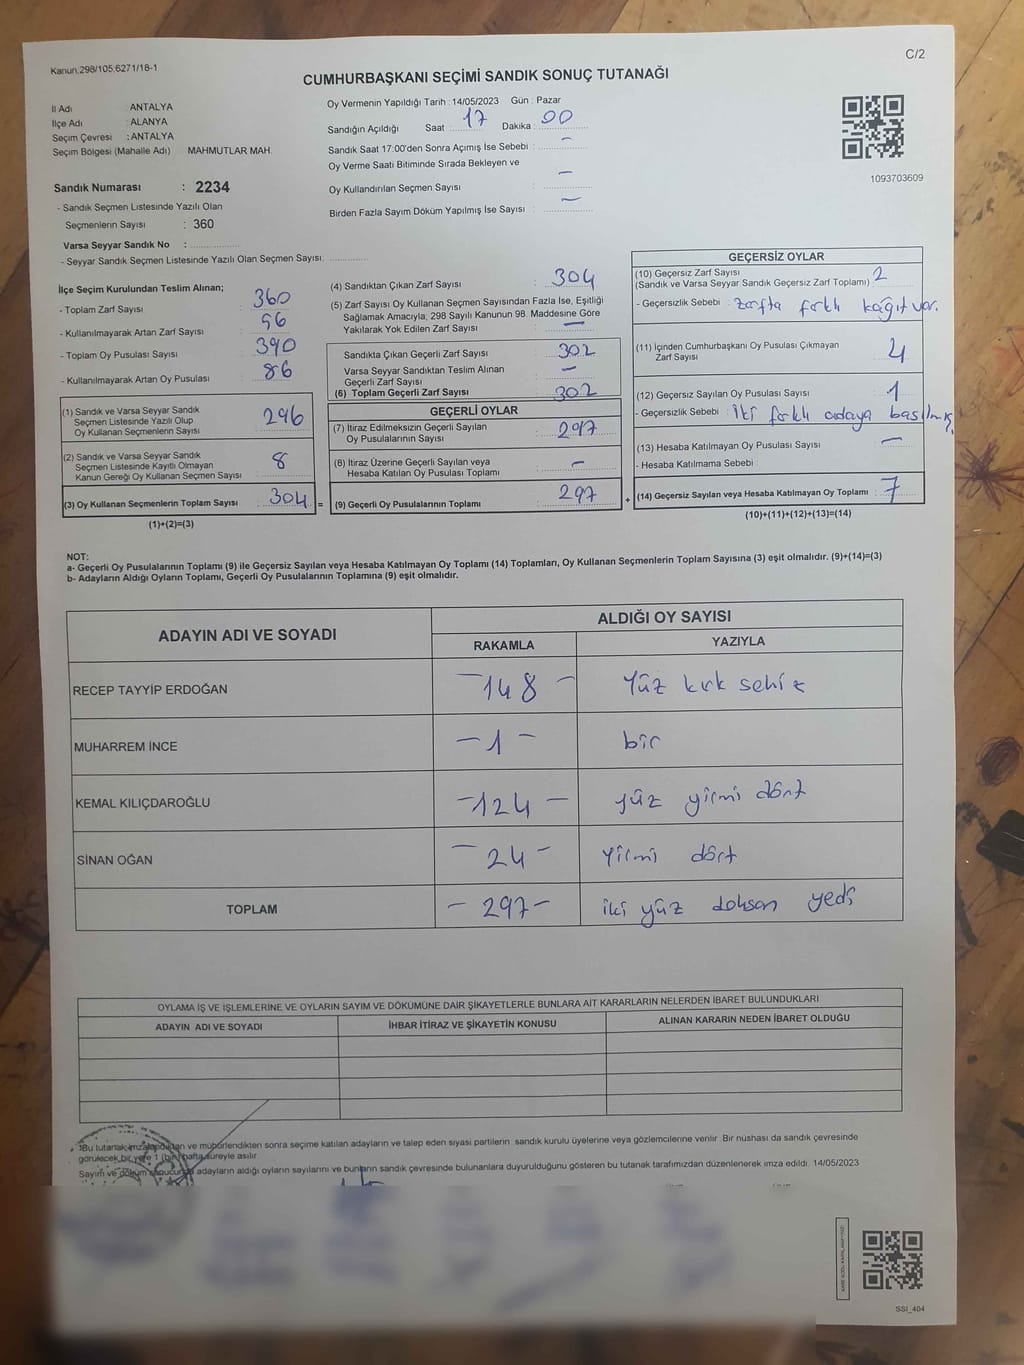 Kanun.298/105,6271/18-1
C/2
CUMHURBAŞKANI SEÇİMİ SANDIK SONUÇ TUTANAĞI
İl Adı : ANTALYA
İlçe Adı : ALANYA
Seçim Çevresi : ANTALYA
Seçim Bölgesi (Mahalle Adı) MAHMUTLAR MAH.
Sandık Numarası : 2234
- Sandık Seçmen Listesinde Yazılı Olan
Seçmenlerin Sayısı : 360
Varsa Seyyar Sandık No :
- Seyyar Sandık Seçmen Listesinde Yazılı Olan Seçmen Sayısı:
Oy Vermenin Yapıldığı Tarih : 14/05/2023 Gün : Pazar
Sandığın Açıldığı Saat : 17 Dakika : 00
Sandık Saat 17:00'den Sonra Açımış İse Sebebi : –
Oy Verme Saati Bitiminde Sırada Bekleyen ve
Oy Kullandırılan Seçmen Sayısı : –
Birden Fazla Sayım Döküm Yapılmış İse Sayısı : –
1093703609
İlçe Seçim Kurulundan Teslim Alınan;
- Toplam Zarf Sayısı : 360
- Kullanılmayarak Artan Zarf Sayısı : 56
- Toplam Oy Pusulası Sayısı : 390
- Kullanılmayarak Artan Oy Pusulası : 86
(1) Sandık ve Varsa Seyyar Sandık
Seçmen Listesinde Yazılı Olup
Oy Kullanan Seçmenlerin Sayısı : 296
(2) Sandık ve Varsa Seyyar Sandık
Seçmen Listesinde Kayıtlı Olmayan
Kanun Gereği Oy Kullanan Seçmen Sayısı : 8
(3) Oy Kullanan Seçmenlerin Toplam Sayısı : 304 =
(1)+(2)=(3)
(4) Sandıktan Çıkan Zarf Sayısı : 304
(5) Zarf Sayısı Oy Kullanan Seçmen Sayısından Fazla İse, Eşitliği
Sağlamak Amacıyla; 298 Sayılı Kanunun 98. Maddesine Göre
Yakılarak Yok Edilen Zarf Sayısı : –
Sandıkta Çıkan Geçerli Zarf Sayısı : 302
Varsa Seyyar Sandıktan Teslim Alınan
Geçerli Zarf Sayısı : –
(6) Toplam Geçerli Zarf Sayısı : 302
GEÇERLİ OYLAR
(7) İtiraz Edilmeksizin Geçerli Sayılan
Oy Pusulalarının Sayısı : 297
(8) İtiraz Üzerine Geçerli Sayılan veya
Hesaba Katılan Oy Pusulası Toplamı : –
(9) Geçerli Oy Pusulalarının Toplamı : 297 +
GEÇERSİZ OYLAR
(10) Geçersiz Zarf Sayısı
(Sandık ve Varsa Seyyar Sandık Geçersiz Zarf Toplamı) : 2
- Geçersizlik Sebebi : Zarfta farklı kağıt var.
(11) İçinden Cumhurbaşkanı Oy Pusulası Çıkmayan
Zarf Sayısı : 4
(12) Geçersiz Sayılan Oy Pusulası Sayısı : 1
- Geçersizlik Sebebi : İki farklı adaya basılmış.
(13) Hesaba Katılmayan Oy Pusulası Sayısı : –
- Hesaba Katılmama Sebebi :
(14) Geçersiz Sayılan veya Hesaba Katılmayan Oy Toplamı : 7
(10)+(11)+(12)+(13)=(14)
NOT:
a- Geçerli Oy Pusulalarının Toplamı (9) ile Geçersiz Sayılan veya Hesaba Katılmayan Oy Toplamı (14) Toplamları, Oy Kullanan Seçmenlerin Toplam Sayısına (3) eşit olmalıdır. (9)+(14)=(3)
b- Adayların Aldığı Oyların Toplamı, Geçerli Oy Pusulalarının Toplamına (9) eşit olmalıdır.
ADAYIN ADI VE SOYADI ALDIĞI OY SAYISI
RAKAMLA YAZIYLA
RECEP TAYYİP ERDOĞAN –148– Yüz kırk sekiz
MUHARREM İNCE –1– bir
KEMAL KILIÇDAROĞLU –124– yüz yirmi dört
SİNAN OĞAN –24– Yirmi dört
TOPLAM –297– iki yüz doksan yedi
OYLAMA İŞ VE İŞLEMLERİNE VE OYLARIN SAYIM VE DÖKÜMÜNE DAİR ŞİKAYETLERLE BUNLARA AİT KARARLARIN NELERDEN İBARET BULUNDUKLARI
ADAYIN ADI VE SOYADI İHBAR İTİRAZ VE ŞİKAYETİN KONUSU ALINAN KARARIN NEDEN İBARET OLDUĞU
*Bu tutanak imzalandıktan ve mühürlendikten sonra seçime katılan adayların ve talep eden siyasi partilerin sandık kurulu üyelerine veya gözlemcilerine verilir. Bir nüshası da sandık çevresinde
görülecek bir yere 1 (bir) hafta süreyle asılır.
Sayım ve döküm sonucunda adayların aldığı oyların sayılarını ve bunların sandık çevresinde bulunanlara duyurulduğunu gösteren bu tutanak tarafımızdan düzenlenerek imza edildi. 14/05/2023
SSI_404